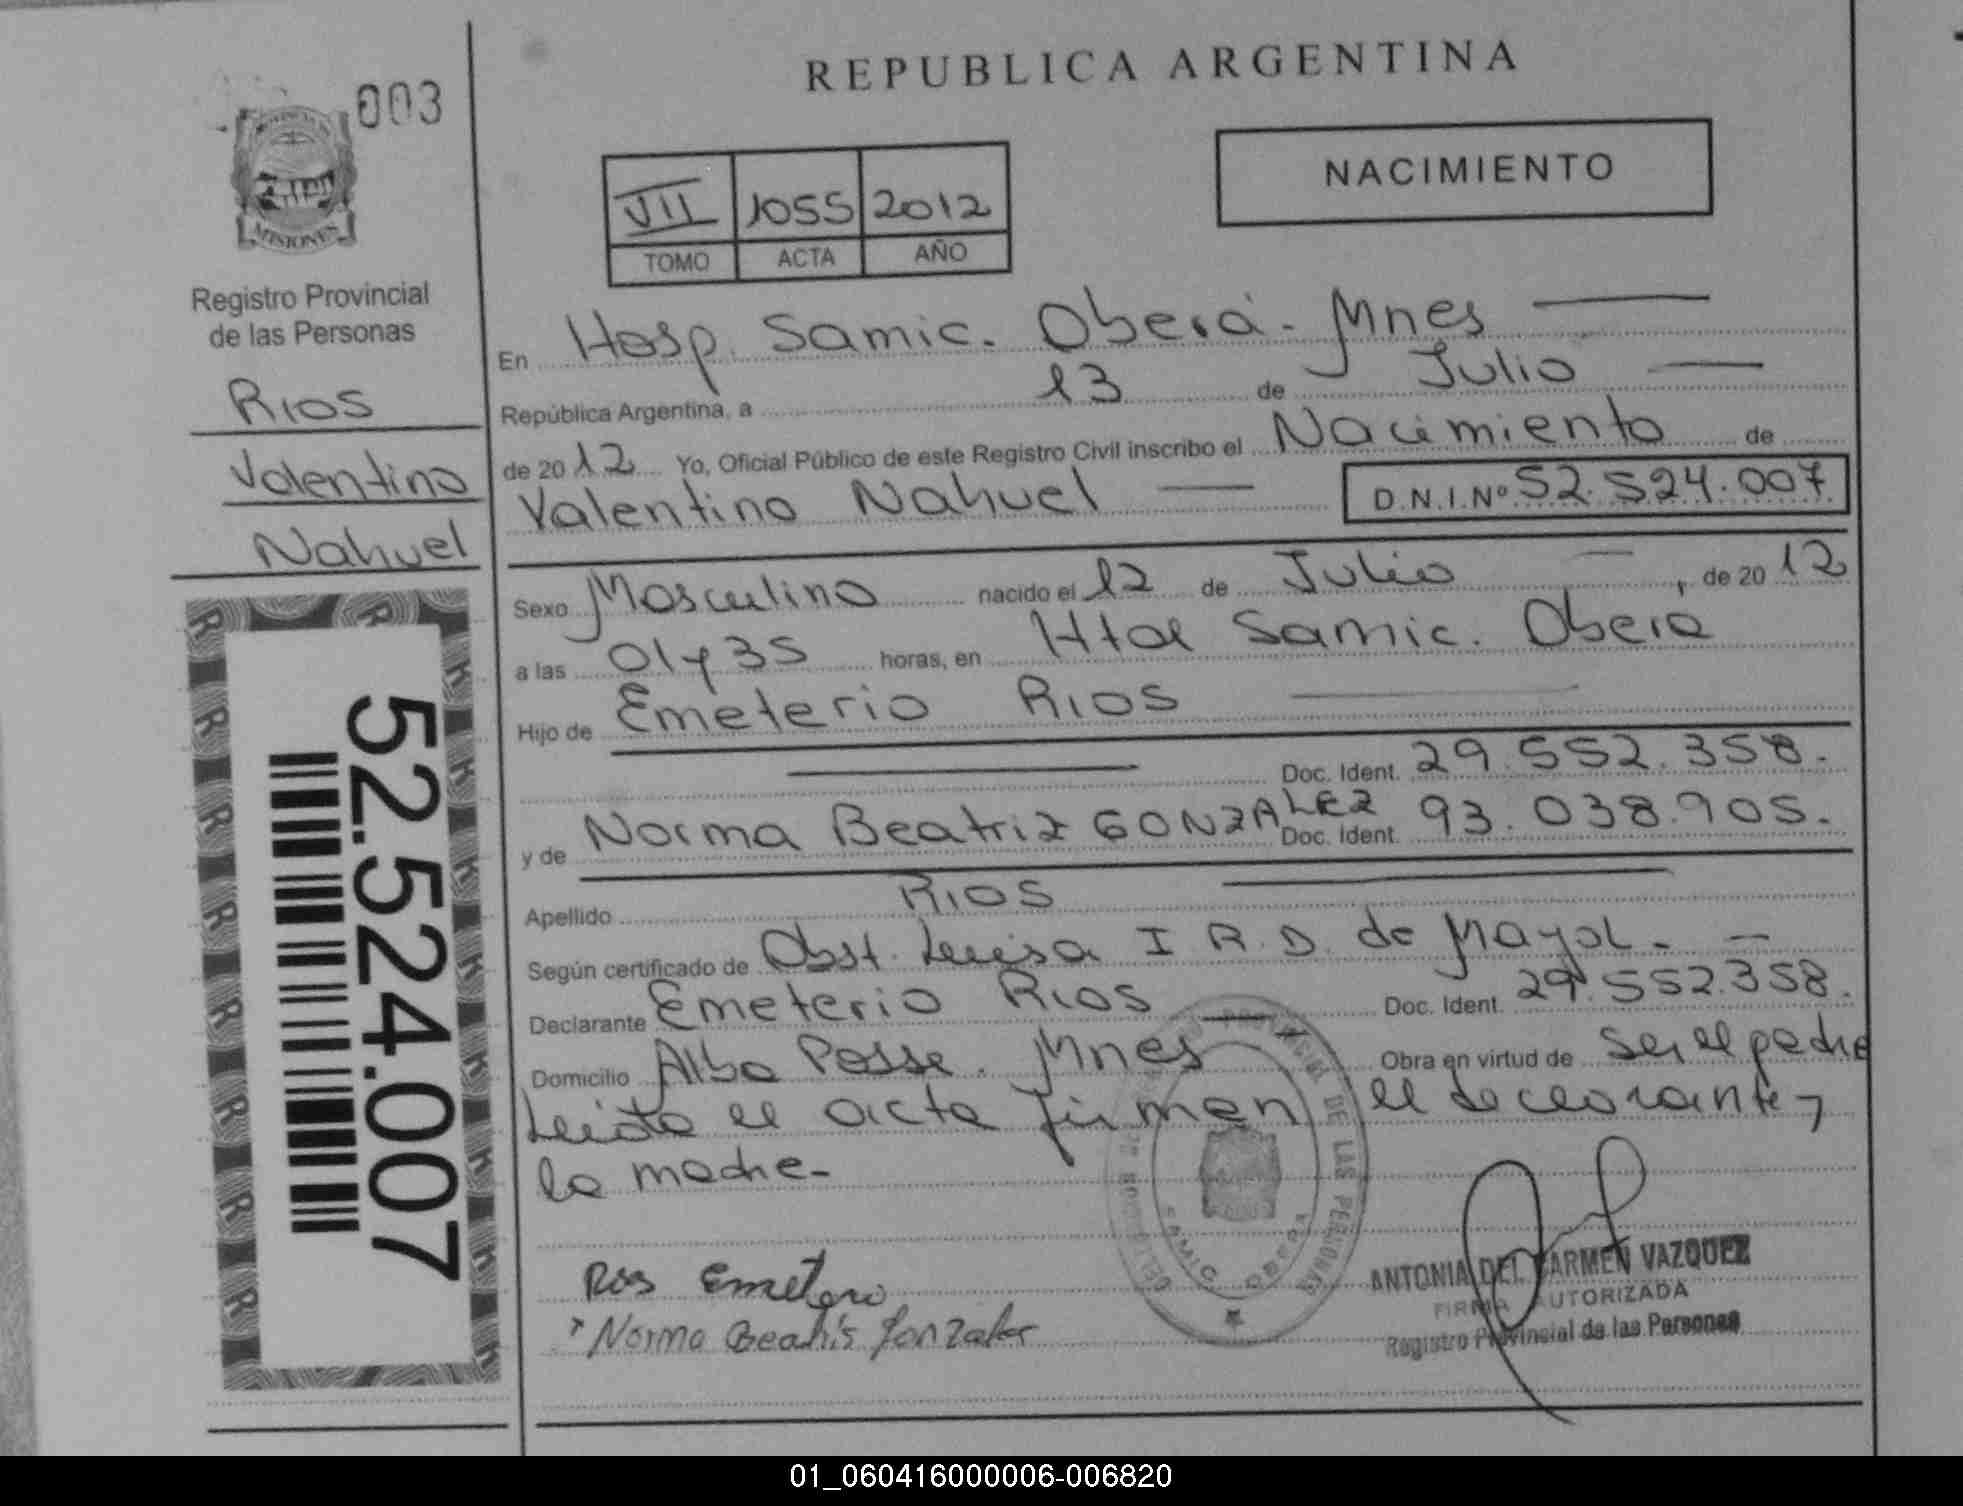 REPUBLICA ARGENTINA
003
PROVINCIA DE
MISIONES
Registro Provincial
de las Personas
Rios
Valentino
Nahuel
52.524.007
VII 1055 2012
TOMO ACTA AÑO
NACIMIENTO
En Hosp. Samic. Oberá - Mnes
República Argentina, a 13 de Julio
de 20 12 Yo, Oficial Público de este Registro Civil inscribo el Nacimiento de
Valentino Nahuel D.N.I.Nº 52.524.007
Sexo Masculino nacido el 12 de Julio, de 20 12
a las 01 y 35 horas, en Htal Samic. Oberá
Hijo de Emeterio Rios
Doc. Ident. 29.552.358.
y de Norma Beatriz GONZALEZ Doc. Ident. 93.038.905.
Apellido RIOS
Según certificado de Obst. Luisa I R. D. de Mayol. -
Declarante Emeterio Rios Doc. Ident. 29.552.358.
Domicilio Alba Posse. Mnes Obra en virtud de ser el padre
Leida el acta firman el declarante y
la madre-
Rios Emeterio
Norma Beatris Gonzalez
PROVINCIAL DE LAS PERSONAS
SAMIC OBERA
ANTONIA DEL CARMEN VAZQUEZ
FIRMA AUTORIZADA
Registro Provincial de las Personas
01_060416000006-006820